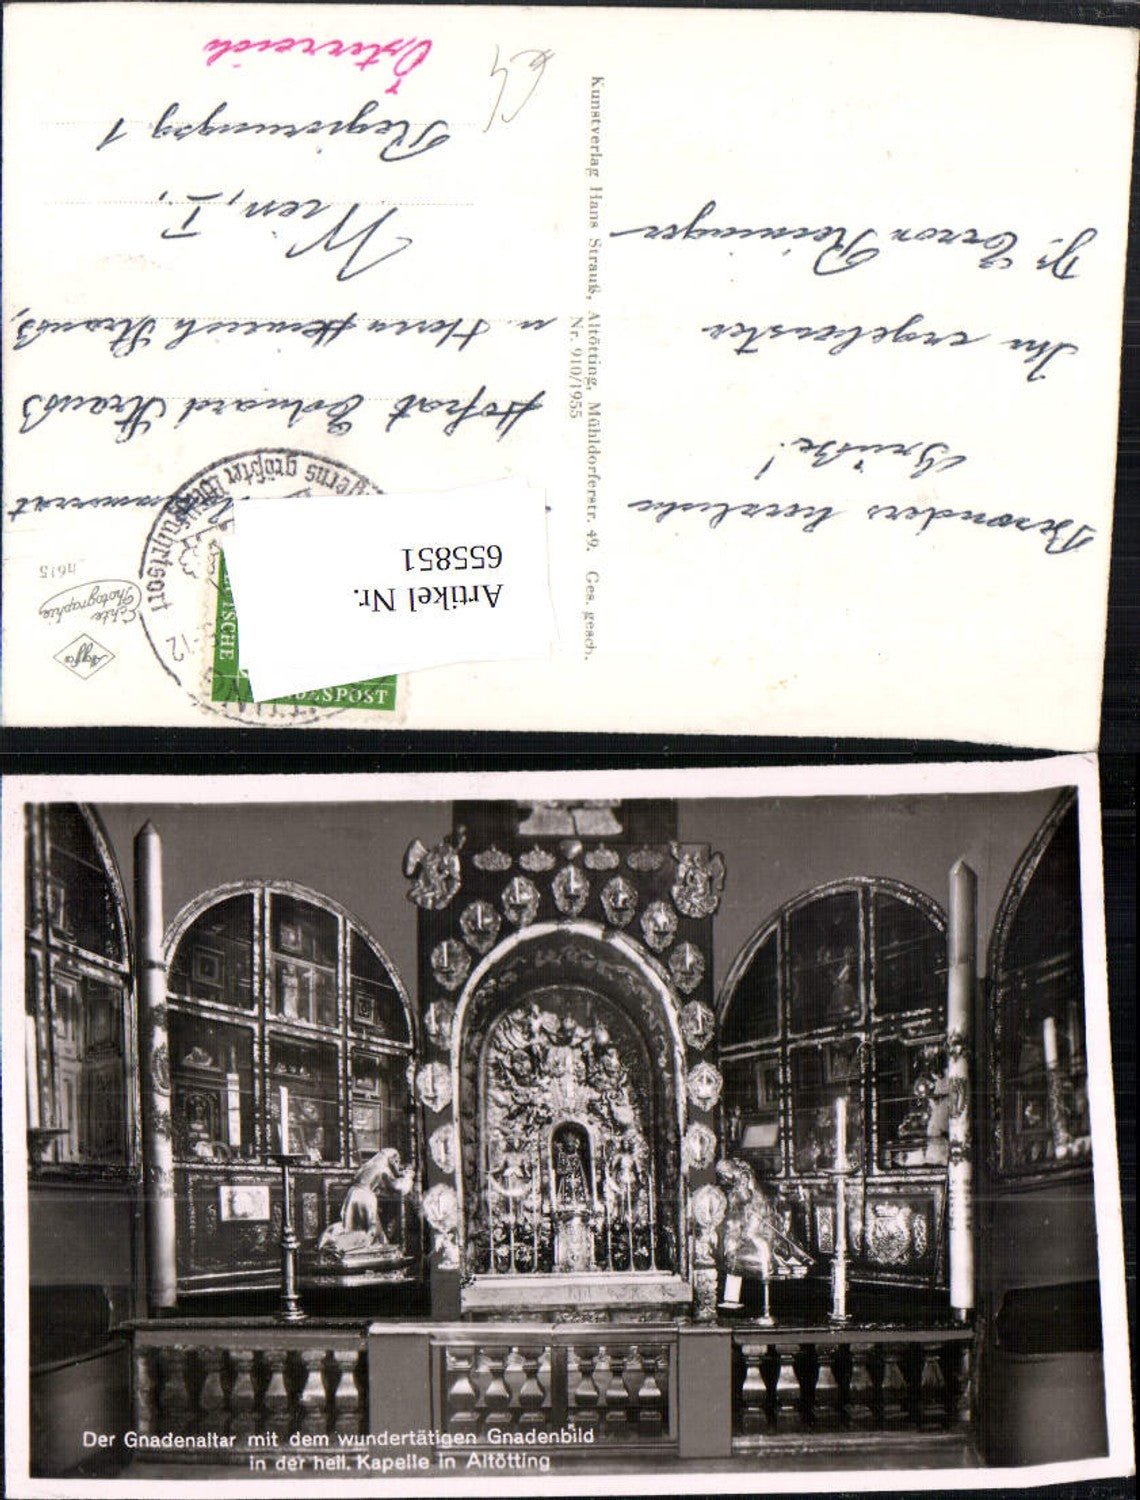 Besonders herzliche
Grüße!
Ihr ergebenster
Dr. Erron Reininger
Kunstverlag Hans Strauß, Altötting, Mühldorferstr. 49. Ges. gesch.
Nr. 910/1955
Agfa
Echte
Photographie
Bayerns größter Wallfahrtsort
DEUTSCHE
BUNDESPOST
Artikel Nr.
655851
Hofrat Eduard Strauß
u. Herrn Heinrich Strauß,
Wien, I.,
Regierungsg 1
Österreich
Der Gnadenaltar mit dem wundertätigen Gnadenbild
in der heil. Kapelle in Altötting